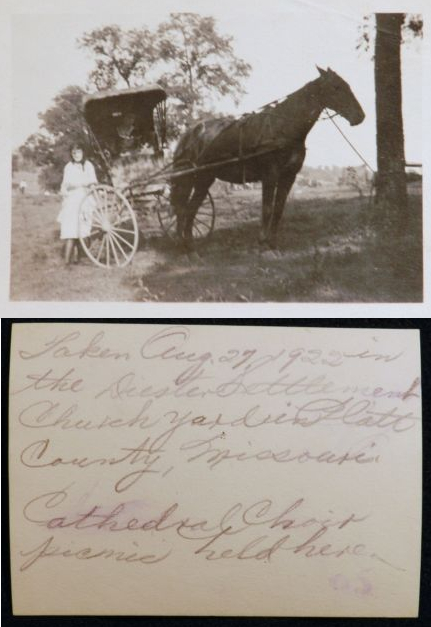 Taken Aug. 27, 1922 in
the Diester Settlement
Church yard in Platt
County, Missouri
Cathedral Choir
picnic held here